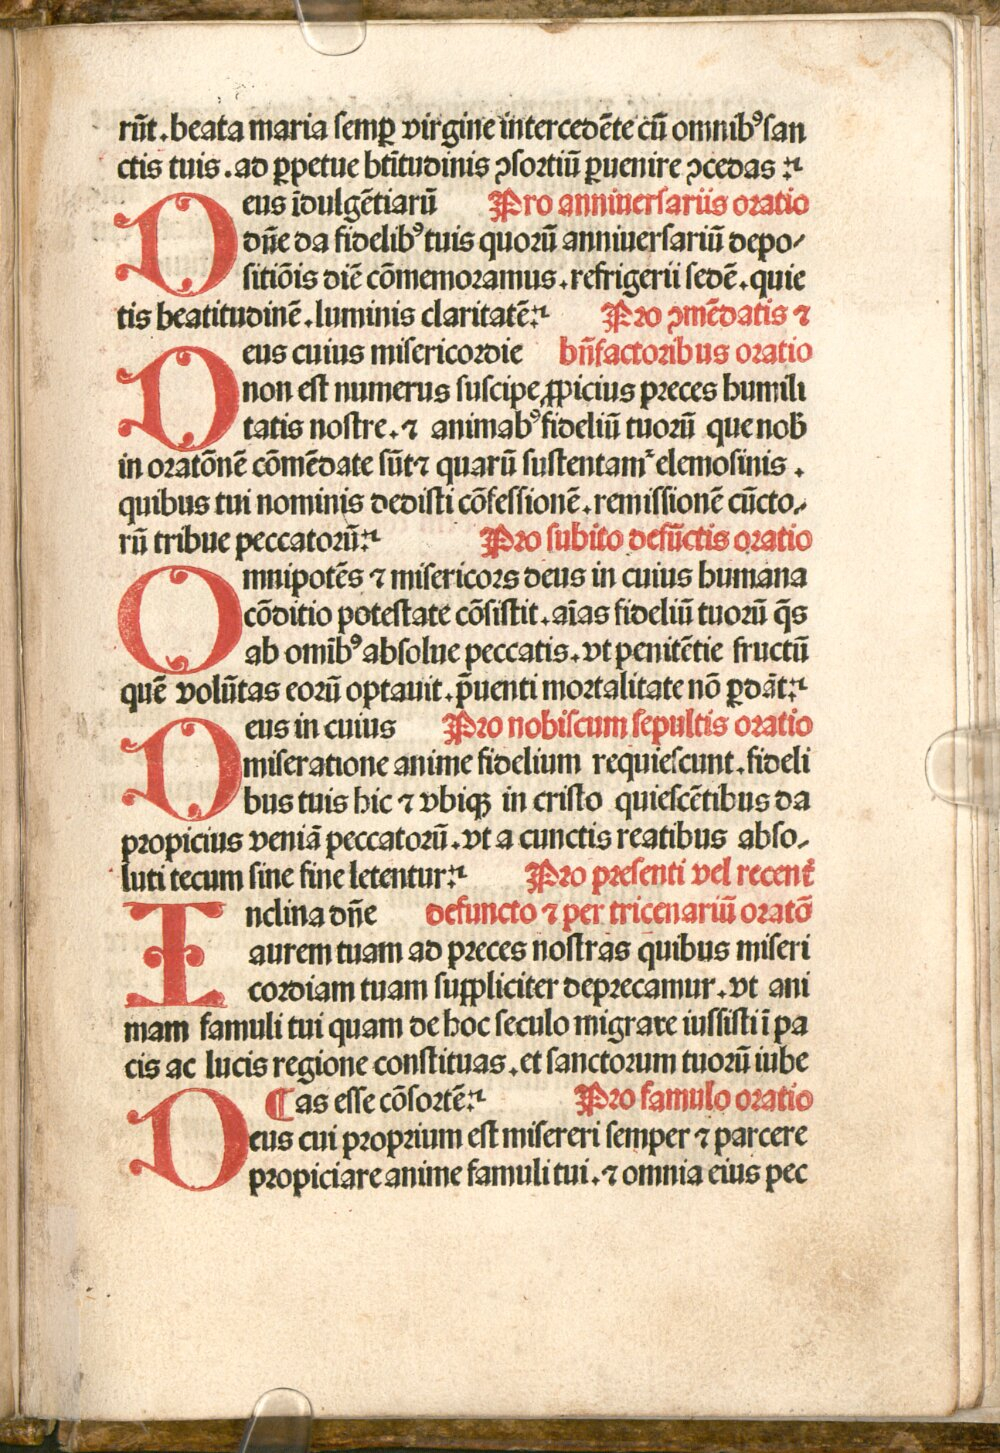 rūt. beata maria semꝑ virgine intercedēte cū omnibꝰ san
ctis tuis. ad ꝑpetue bt̄itudinis ꝯsortiū ꝑuenire ꝯcedas :⁊
Deus īdulgētiarū Pro anniuersariis oratio
dn̄e da fidelibꝰ tuis quorū anniuersariū depo⸗
sitiōis diē cōmemoramus. refrigerii sedē. quie
tis beatitudinē. luminis claritatē:⁊ Pro ꝯmēdatis ⁊
Deus cuius misericordie bn̄factoribus oratio
non est numerus suscipe ꝓpicius preces humili
tatis nostre. ⁊ animabꝰ fideliū tuorū que nob̄
in oratōnē cōmēdate sūt ⁊ quarū sustentamᷣ elemosinis .
quibus tui nominis dedisti cōfessionē. remissionē cūcto⸗
rū tribue peccatorū:⁊ Pro subito defūctis oratio
Omnipotēs ⁊ misericors deus in cuius humana
cōditio potestate cōsistit. aīas fideliū tuorū q̄s
ab omībꝰ absolue peccatis. vt penitētie fructū
quē volūtas eorū optauit. p̄uenti mortalitate nō ꝑdāt:⁊
Deus in cuius Pro nobiscum sepultis oratio
miseratione anime fidelium requiescunt. fideli
bus tuis hic ⁊ vbiqꝫ in cristo quiescētibus da
propicius veniā peccatorū. vt a cunctis reatibus abso⸗
luti tecum sine fine letentur:⁊ Pro presenti vel recent̄
Inclina dn̄e defuncto ⁊ per tricenariū oratō
aurem tuam ad preces nostras quibus miseri
cordiam tuam suppliciter deprecamur. vt ani
mam famuli tui quam de hoc seculo migrare iussisti ī pa
cis ac lucis regione constituas. et sanctorum tuorū iube
¶as esse cōsortē:⁊ Pro famulo oratio
Deus cui proprium est misereri semper ⁊ parcere
propiciare anime famuli tui. ⁊ omnia eius pec